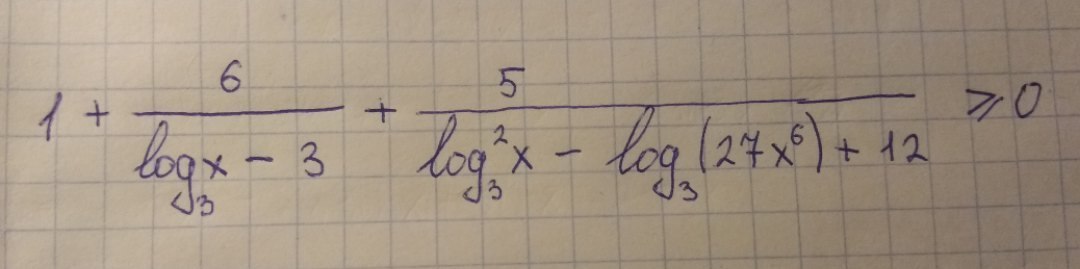 1 + \frac{6}{\log_3 x - 3} + \frac{5}{\log_3^2 x - \log_3 (27x^6) + 12} \geqslant 0